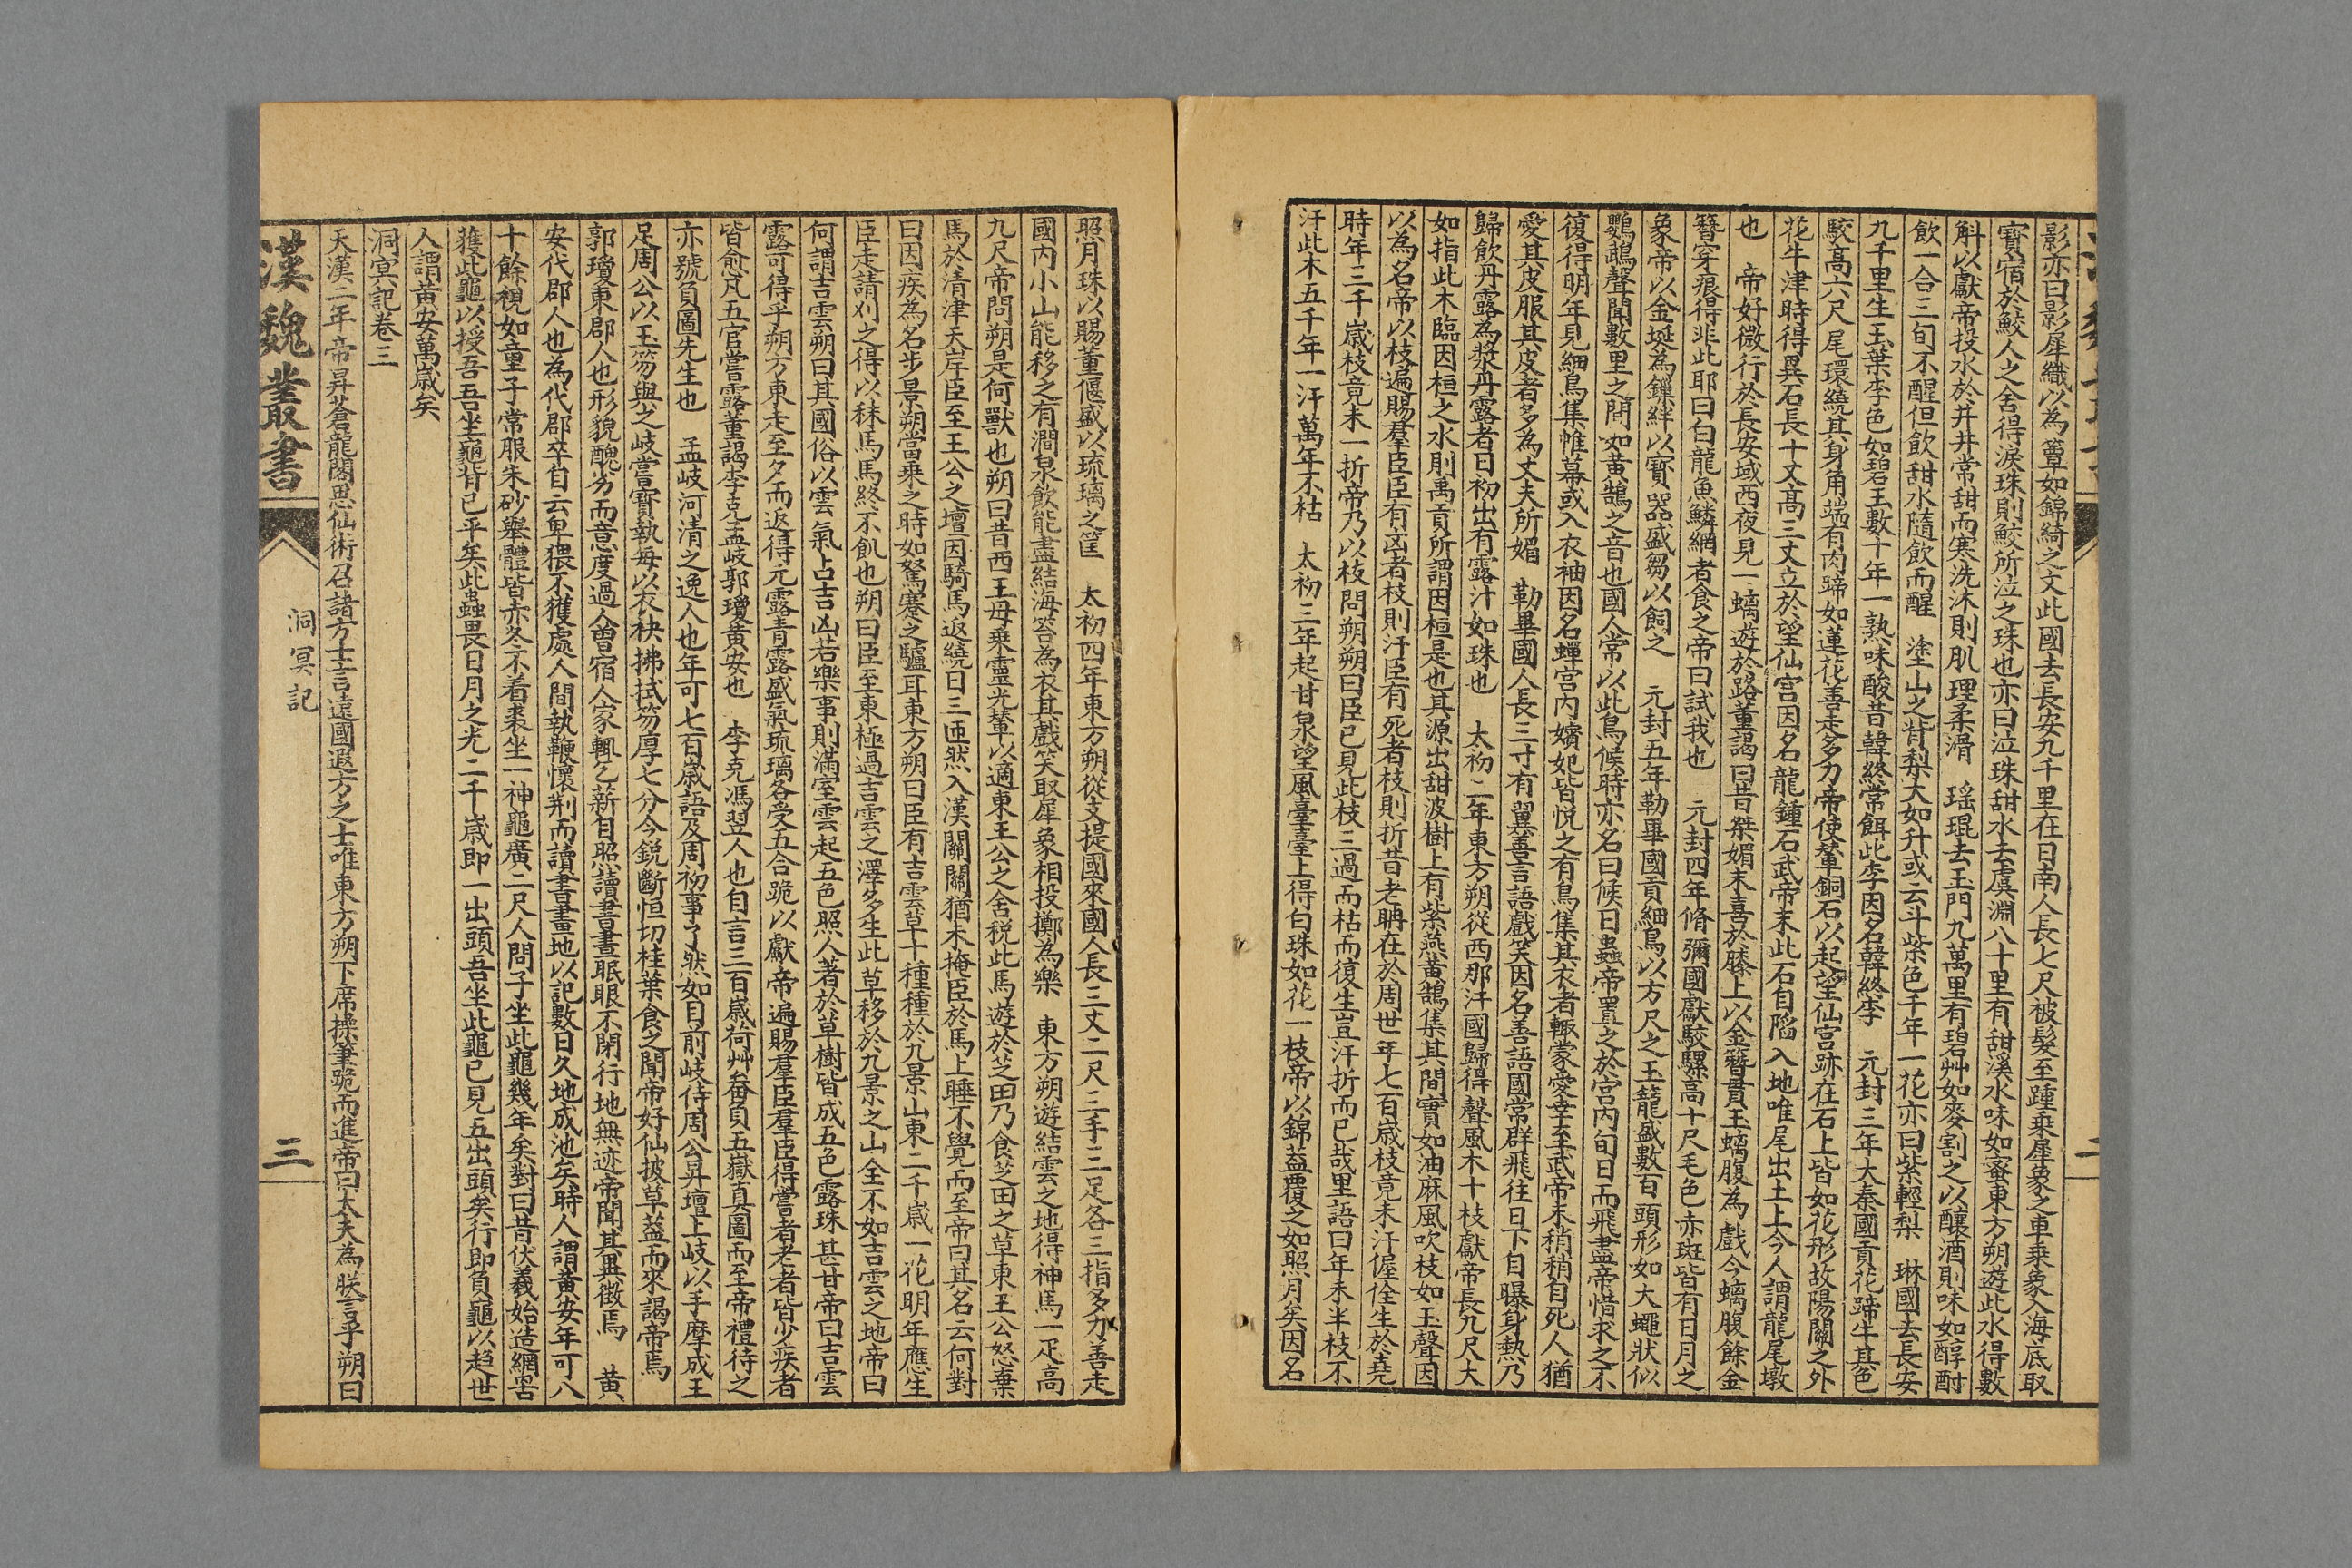 影亦曰影犀織以為簟如錦綺之文此國去長安九千里在日南人長七尺被髮至踵乘犀象之車乘象入海底取
寶宿於鮫人之舍得淚珠則鮫所泣之珠也亦曰泣珠甜水去虞淵八十里有甜溪水味如蜜東方朔遊此水得數
斛以獻帝投水於井井常甜而寒洗沐則肌理柔滑　瑤琨去玉門九萬里有碧艸如麥割之以釀酒則味如醇酎
飲一合三旬不醒但飲甜水隨飲而醒　塗山之背梨大如升或云斗紫色千年一花亦曰紫輕梨　琳國去長安
九千里生玉葉李色如碧玉數十年一熟味酸昔韓終常餌此李因名韓終李　元封三年大秦國貢花蹄牛其色
駮高六尺尾環繞其身角端有肉蹄如蓮花善走多力帝使輦銅石以起望仙宮跡在石上皆如花形故陽關之外
花牛津時得異石長十丈高三丈立於望仙宮因名龍鍾石武帝末此石自陷入地唯尾出土上今人謂龍尾墩
也　帝好微行於長安城西夜見一螭遊於路董謁曰昔桀媚末喜於膝上以金簪貫玉螭腹為戲今螭腹餘金
簪穿痕得非此耶曰白龍魚鱗網者食之帝曰試我也　元封四年脩彌國獻駮騾高十尺毛色赤斑皆有日月之
象帝以金埏為鏁絆以寶器盛芻以飼之　元封五年勒畢國貢細鳥以方尺之玉籠盛數百頭形如大蠅狀似
鸚鵡聲聞數里之間如黃鵠之音也國人常以此鳥候時亦名曰候日蟲帝置之於宮內旬日而飛盡帝惜求之不
復得明年見細鳥集帷幕或入衣袖因名蟬宮內嬪妃皆悅之有鳥集其衣者輙蒙愛幸至武帝末稍稍自死人猶
愛其皮服其皮者多為丈夫所媚　勒畢國人長三寸有翼善言語戲笑因名善語國常群飛往日下自曝身熱乃
歸飲丹露為漿丹露者日初出有露汁如珠也　太初二年東方朔從西那汗國歸得聲風木十枝獻帝長九尺大
如指此木臨因桓之水則禹貢所謂因桓是也其源出甜波樹上有紫燕黃鵠集其間實如油麻風吹枝如玉聲因
以為名帝以枝遍賜羣臣臣有凶者枝則汗臣有死者枝則折昔老聃在於周世年七百歲枝竟未汗偓佺生於堯
時年三千歲枝竟未一折帝乃以枝問朔朔曰臣已見此枝三過而枯而復生豈汗折而已哉里語曰年未半枝不
汗此木五千年一汗萬年不枯　太初三年起甘泉望風臺臺上得白珠如花一枝帝以錦葢覆之如照月矣因名
二
照月珠以賜董偃盛以琉璃之筐　太初四年東方朔從支提國來國人長三丈二尺三手三足各三指多力善走
國內小山能移之有澗泉飲能盡結海苔為衣其戲笑取犀象相投擲為樂　東方朔遊結雲之地得神馬一疋高
九尺帝問朔是何獸也朔曰昔西王母乘靈光輦以適東王公之舍稅此馬遊於芝田乃食芝田之草東王公怒棄
馬於清津天岸臣至王公之壇因騎馬返繞日三匝然入漢關關猶未掩臣於馬上睡不覺而至帝曰其名云何對
曰因疾為名步景朔當乘之時如駑蹇之驢耳東方朔曰臣有吉雲草十種種於九景山東二千歲一花明年應生
臣走請刈之得以秣馬馬終不飢也朔曰臣至東極過吉雲之澤多生此草移於九景之山全不如吉雲之地帝曰
何謂吉雲朔曰其國俗以雲氣占吉凶若樂事則滿室雲起五色照人著於草樹皆成五色露珠甚甘帝曰吉雲
露可得乎朔方東走至夕而返得元露青露盛氣琉璃各受五合跪以獻帝遍賜羣臣羣臣得嘗者老者皆少疾者
皆愈凡五官嘗露董謁李克孟岐郭瓊黃安也　李克馮翌人也自言三百歲荷艸畚負五嶽真圖而至帝禮待之
亦號負圖先生也　孟岐河清之逸人也年可七百歲語及周初事了然如目前岐侍周公昇壇上岐以手摩成王
足周公以玉笏與之岐嘗寶執每以衣袂拂拭笏厚七分今銳斷恒切桂葉食之聞帝好仙披草葢而來謁帝焉
郭瓊東郡人也形貌醜劣而意度過人曾宿人家輒乞薪自照讀書晝眠眼不閉行地無迹帝聞其異徵焉　黃
安代郡人也為代郡卒自云卑猥不獲處人間執鞭懷荆而讀書畫地以記數日久地成池矣時人謂黃安年可八
十餘視如童子常服朱砂舉體皆赤冬不着裘坐一神龜廣二尺人問子坐此龜幾年矣對曰昔伏羲始造網罟
獲此龜以授吾吾坐龜背已平矣此蟲畏日月之光二千歲即一出頭吾坐此龜已見五出頭矣行即負龜以趋世
人謂黃安萬歲矣
洞冥記卷三
天漢二年帝昇蒼龍閣思仙術召諸方士言遠國遐方之士唯東方朔下席操筆跪而進帝曰大夫為朕言乎朔曰
漢魏叢書
洞冥記
三